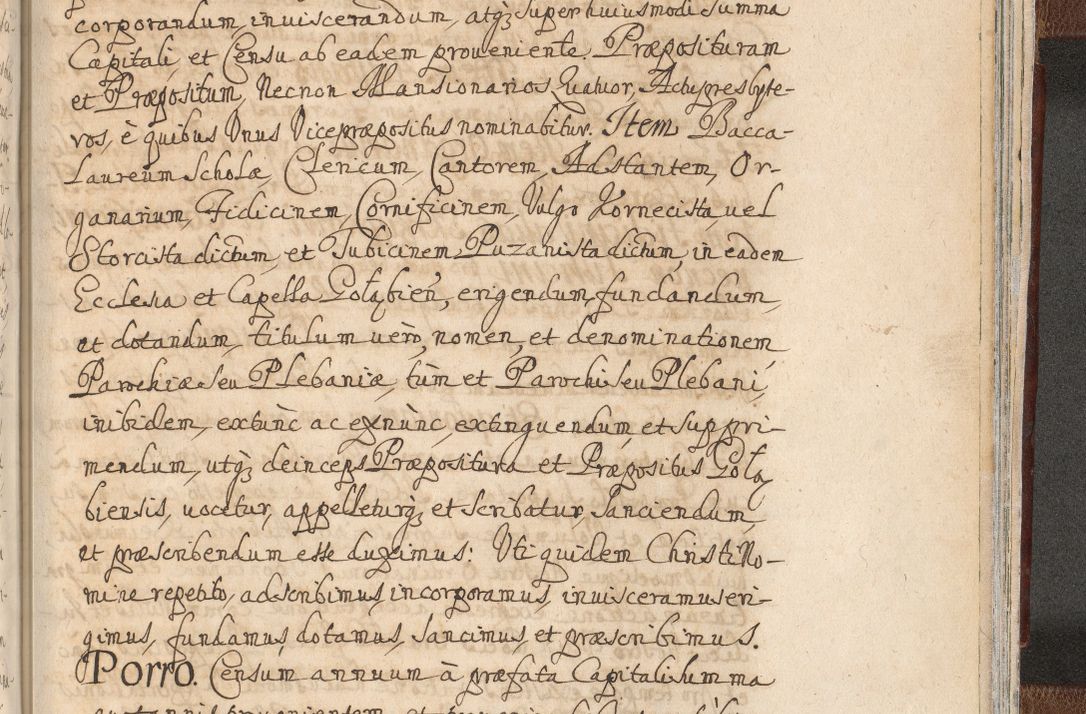 corporandum, inuiscerandum, atq; super huiusmodi summa
Capitali, et Censu ab eadem proueniente. Præposituram
et Præpositum, Necnon Mansionarios Quatuor, Actupresbyte-
ros, è quibus Unus Vicepræpositus nominabitur. Item Bacca-
Laureum Scholæ, Clericum, Cantorem, Adstantem, Or-
ganarium, Fidicinem, Cornificinem, Vulgo Kornecista, uel
Storcista dictum, et Tubicinem Puzanista dictum, in eadem
Ecclesia et Capella Gołąbień, erigendum, fundandum,
et dotandum, titulum uerò, nomen, et denominationem
Parochiæ seu Plebaniæ, tùm et Parochi seu Plebani,
inibidem, extùnc ac exnùnc, extinguendum, et suppri-
mendum, utq; deinceps Præpositura et Præpositus Gołą
biensis, uocetur, appelleturq; et scribatur, sanciendum,
et præscribendum esse duximus: Uti quidem Christi No-
mine repetito, adscribimus, incorporamus, inuisceramus eri-
gimus, fundamus, dotamus, sancimus, et præscribimus.
Porro. Censum annuum à præfata Capitali summa